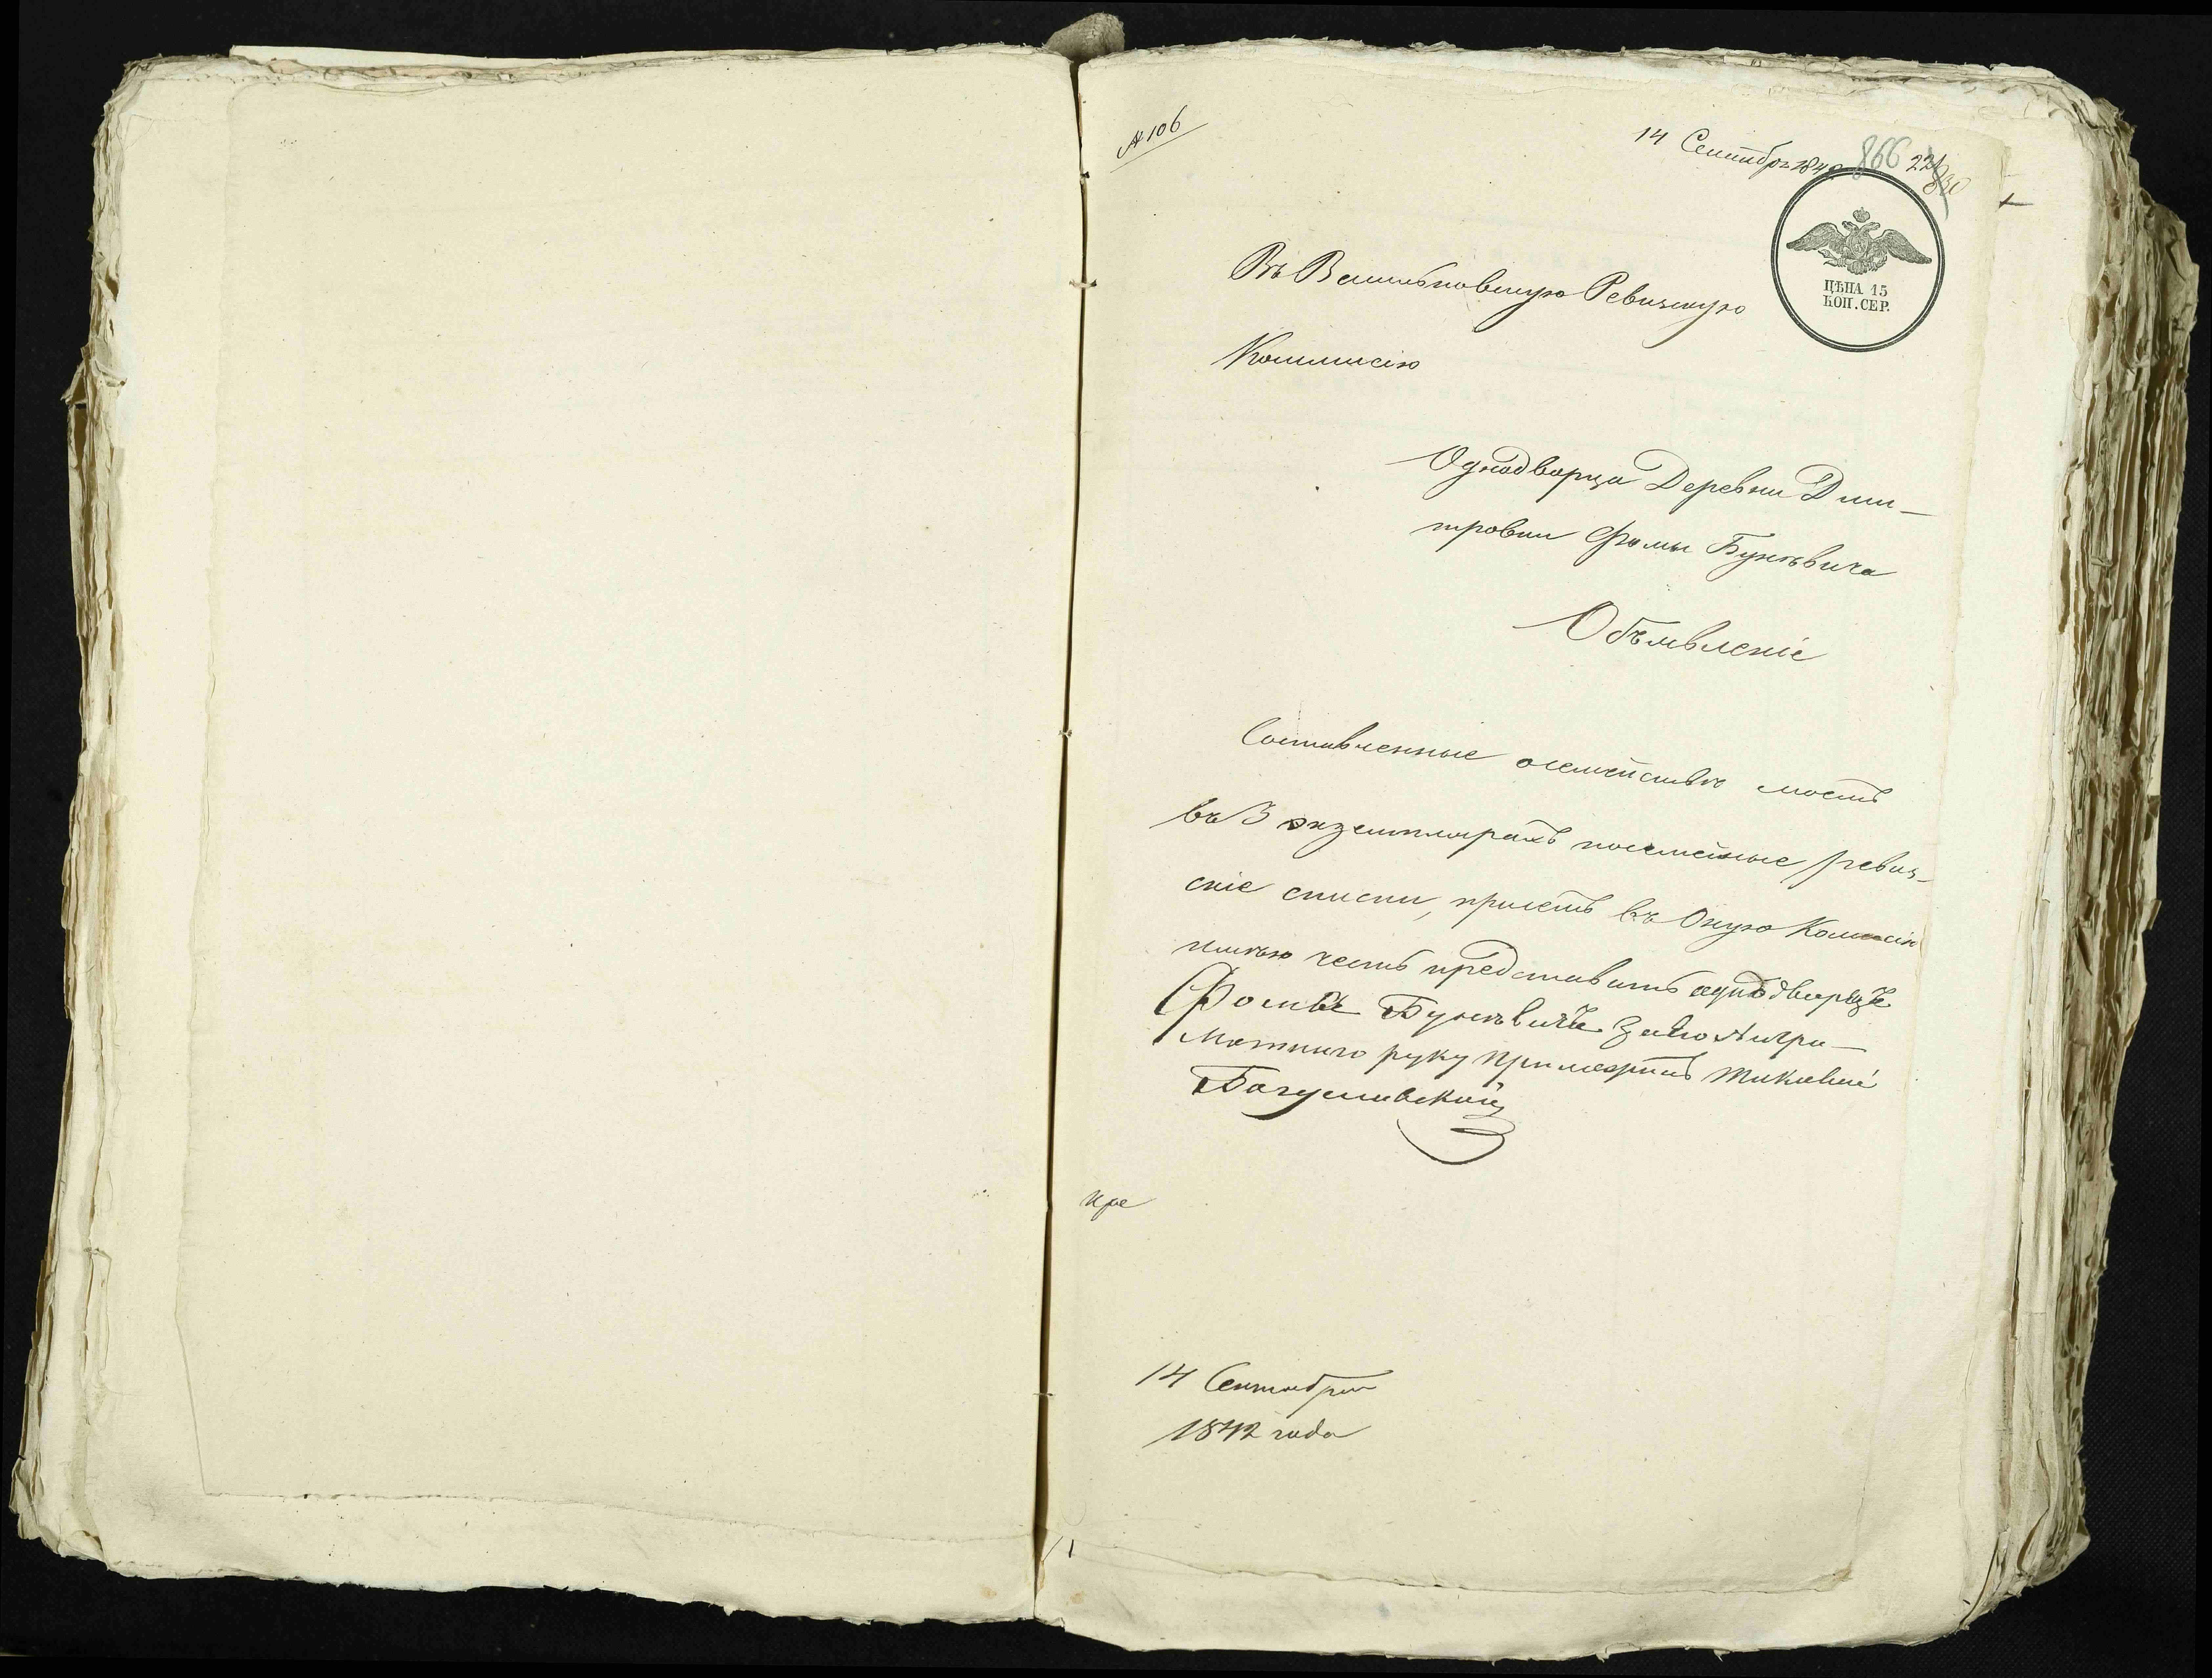 № 106
14 Сентября 1842
866
ЦѢНА 15
КОП. СЕР.
Въ Васильковскую Ревизскую
Коммисію
Однодворца Деревни Дми-
тровки Фомы Буневича
Объявленіе
Составленные о семействѣ моемъ
въ 3 экземплярахъ посемейные ревиз-
скіе списки, при семъ въ Оную Комисію
имѣю честь представить однодворецъ
Фома за его неграмотного руку приложилъ
Богуславскій
пре
14 Сентября
1842 года